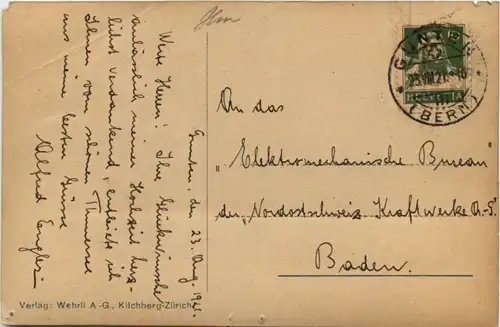 Gunten, den 23. Aug. 1921.
Werte Herren! Ihre Glückwünsche
anlässlich meiner Hochzeit herz-
lichst verdankend, entbiete ich
Ihnen vom schönen Thunersee
aus meine besten Grüsse
Alfred Engler
An das
"Elektromechanische Bureau"
der "Nordostschweiz. Kraftwerke A.-G."
Baden.
GUNTEN
(BERN)
HELVETIA
Verlag: Wehrli A.-G., Kilchberg-Zürich